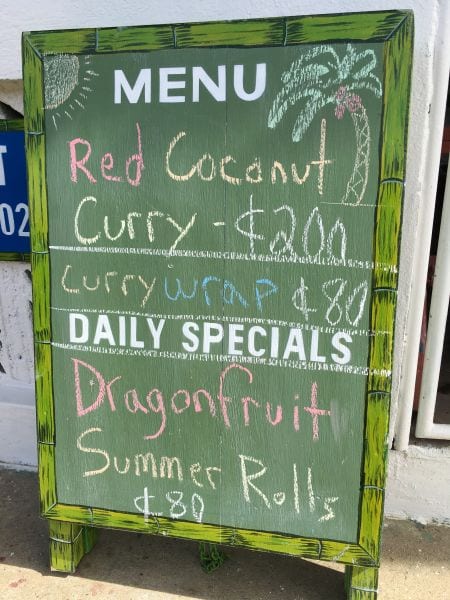 MENU
Red Coconut
Curry - ¢200
curry wrap ¢80
DAILY SPECIALS
Dragonfruit
Summer Rolls
¢80
T
02